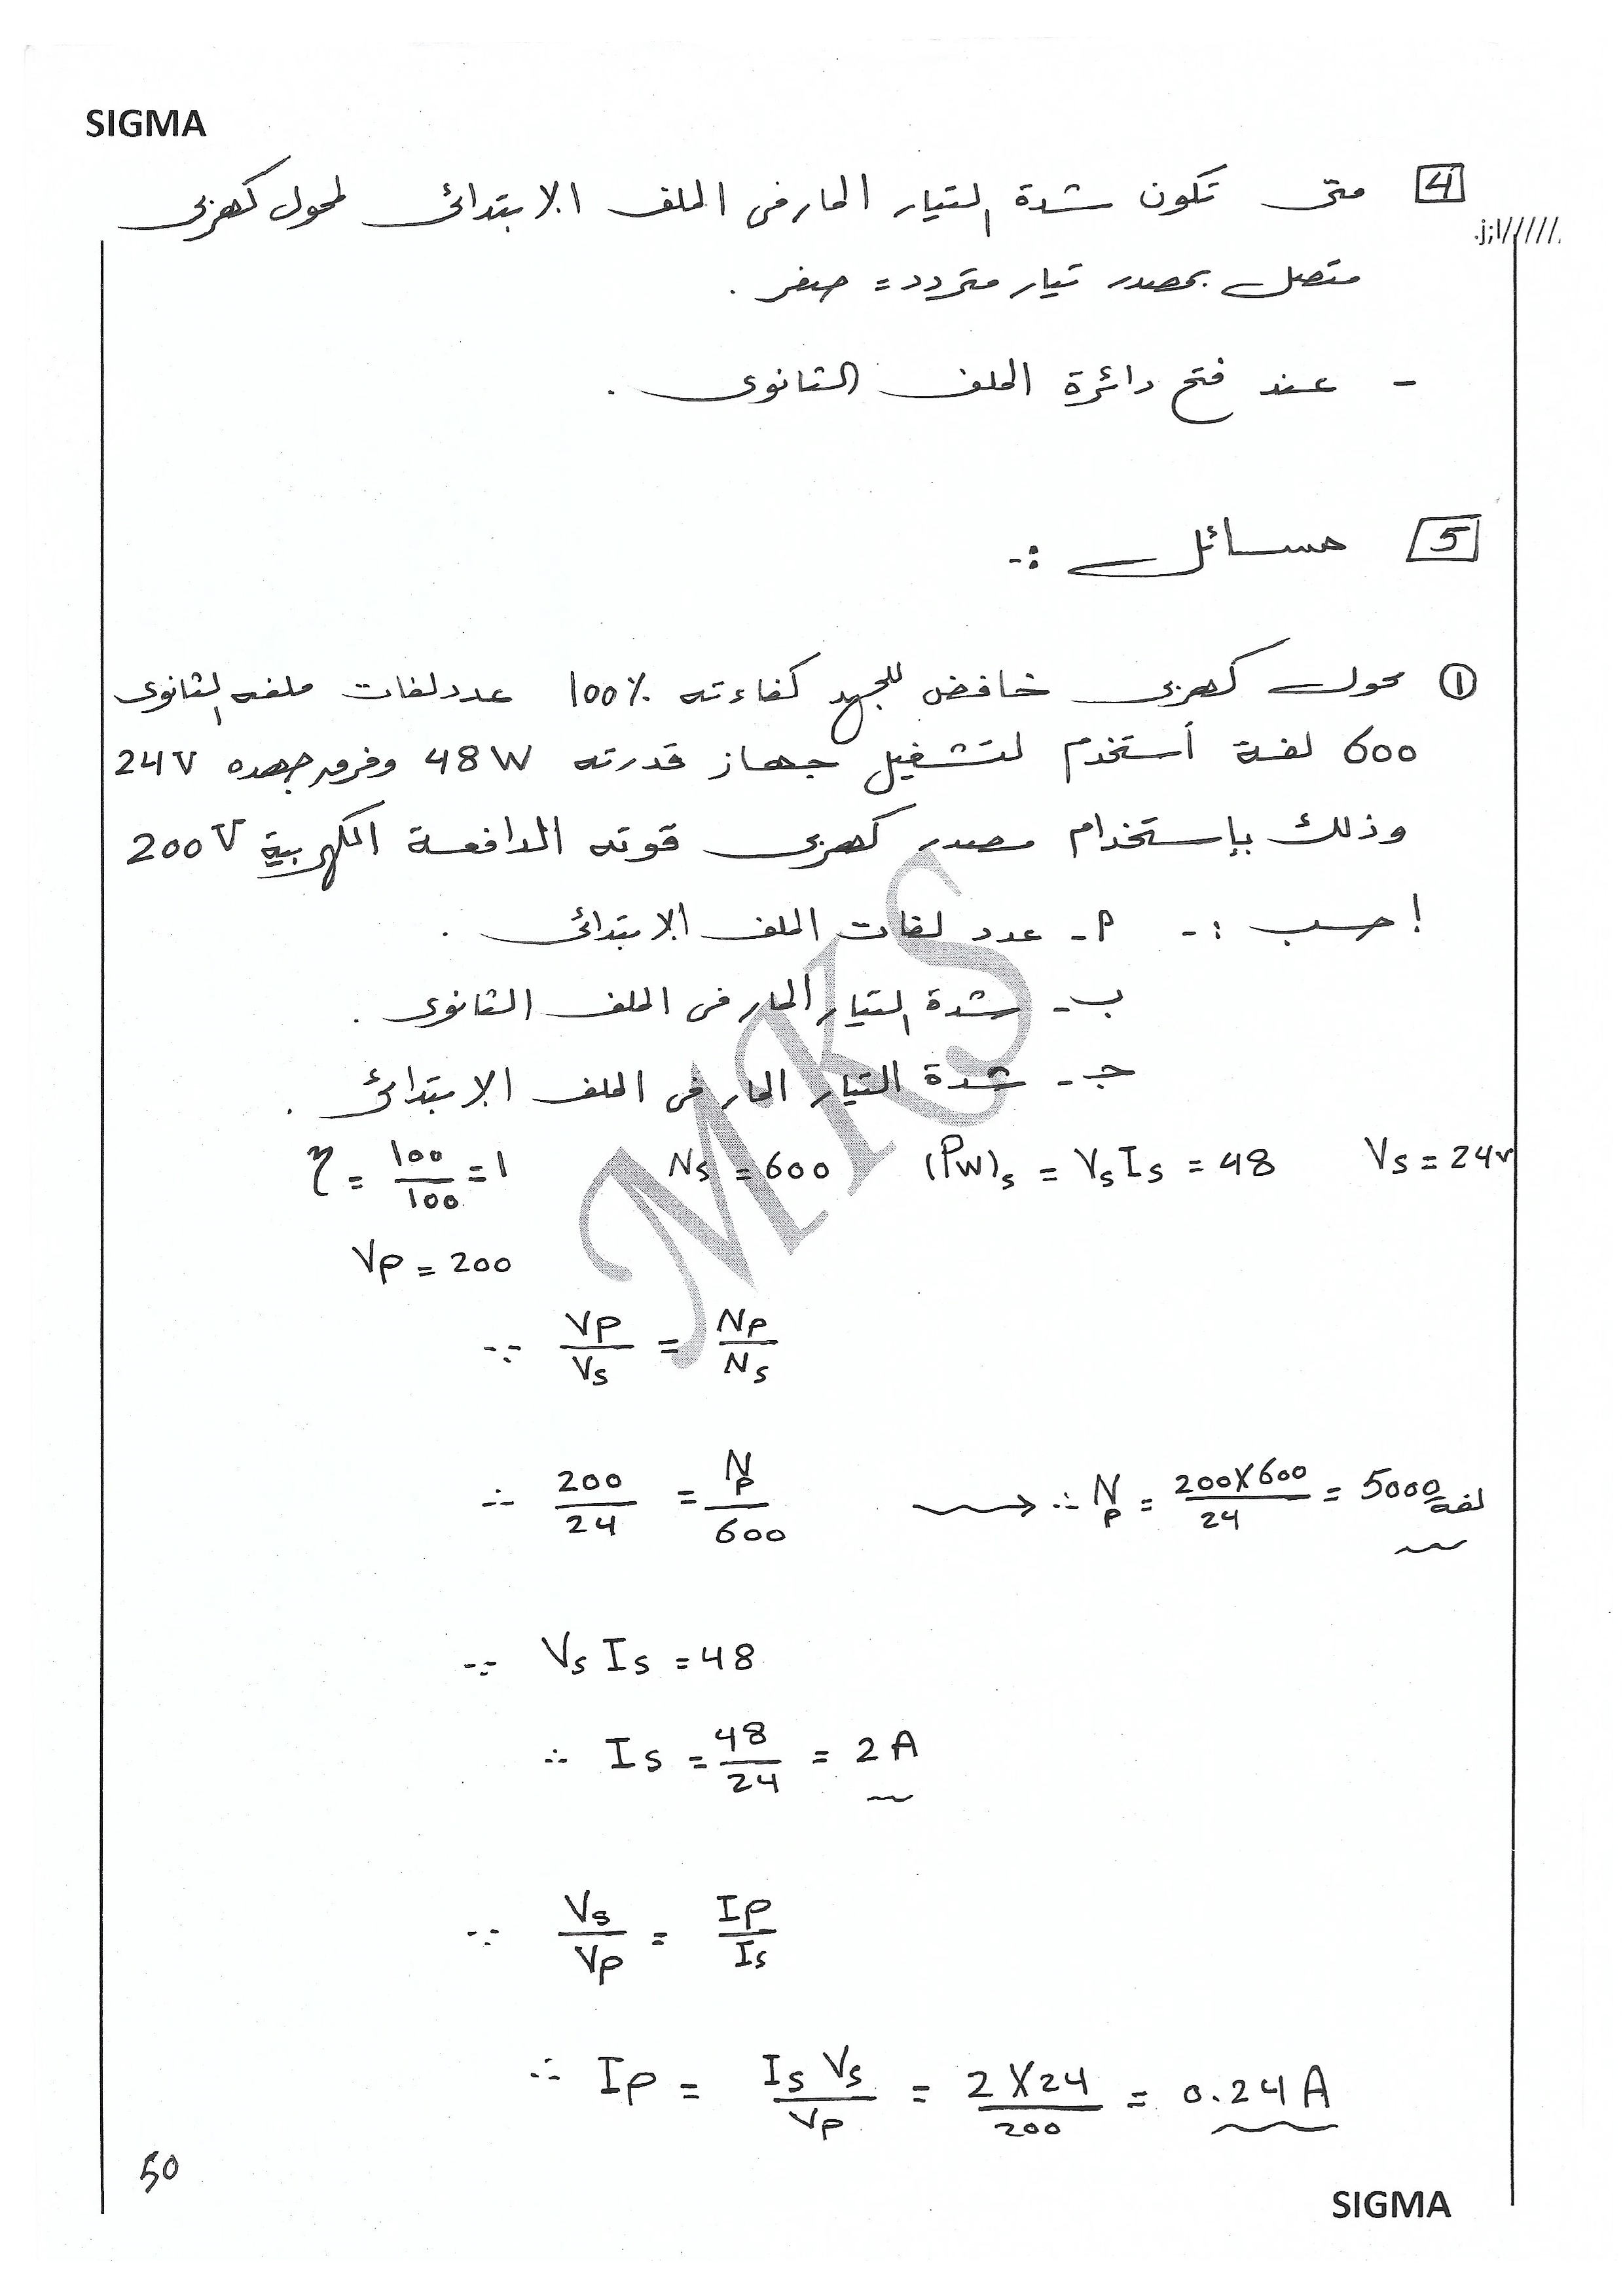 SIGMA
4 متى تكون شدة التيار المار فى الملف الابتدائى لمحول كهربى
متصل بمصدر تيار متردد = صفر .
- عند فتح دائرة الملف الثانوى .
5 مسائل :-
① محول كهربى خافض للجهد كفاءته 100% عدد لفات ملفه الثانوى
600 لفة أستخدم لتشغيل جهاز قدرته 48W وفرق جهده 24V
وذلك بإستخدام مصدر كهربى قوته الدافعة الكهربية 200V
احسب :- أ - عدد لفات الملف الابتدائى .
ب - شدة التيار المار فى الملف الثانوى .
جـ - شدة التيار المار فى الملف الابتدائى .
η = 100/100 = 1 Ns = 600 (Pw)s = Vs Is = 48 Vs = 24v
Vp = 200
∵ Vp/Vs = Np/Ns
∴ 200/24 = Np/600 → ∴ Np = 200X600/24 = 5000 لفة
∵ Vs Is = 48
∴ Is = 48/24 = 2 A
∵ Vs/Vp = Ip/Is
∴ Ip = Is Vs/Vp = 2 X 24/200 = 0.24 A
50
SIGMA
MKS